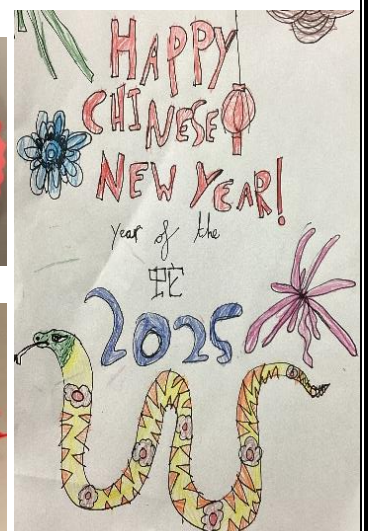 HAPPY
CHINESE
NEW YEAR!
year of the
蛇
2025